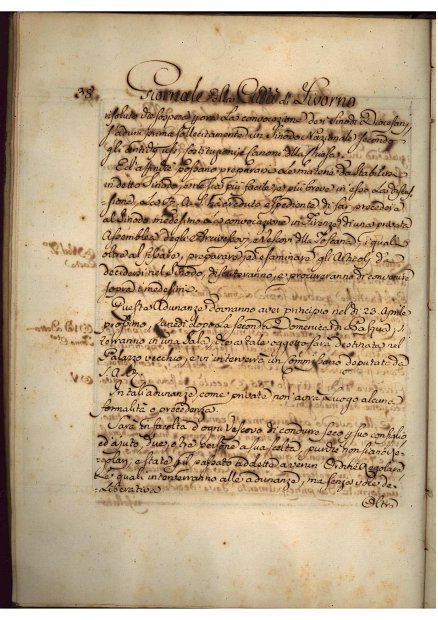 38
Giornale della Città di Livorno
risoluto di sospendere la convocazione dei Sinodi Diocesani,
e adunare sollecitamente un Sinodo Nazionale secondo
gli antichi usi, Costituzioni, e Canoni della Chiesa.
E affinché possano prepararsi le materie da stabilirsi
in detto Sinodo, onde sia più facile, e più breve in esso la discus-
sione, S. A. R. ha creduto espediente di far precedere
al Sinodo medesimo la convocazione in Firenze di una privata
Assemblea degli Arcivescovi, e Vescovi della Toscana, i quali
oltre al fissare, preparare, ed esaminare gli Articoli da
decidersi nel Sinodo, discuteranno, e procureranno di convenire
sopra i medesimi.
Queste Adunanze dovranno aver principio nel dì 23 Aprile
prossimo, Lunedì dopo la seconda Domenica di Pasqua, si
terranno in una Sala, che a tale oggetto sarà destinata nel
Palazzo vecchio, e vi interverrà un Commissario deputato da
S. A. R.
In tali adunanze come private non avrà luogo alcuna
formalità o precedenza.
Sarà in facoltà d'ogni Vescovo di condurre seco per suo consiglio
ed ajuto due, o tre persone a sua scelta, purché non siano Re-
golari, o state per il passato addette a verun Ordine Regolare
le quali interverranno alle adunanze, ma senza voce de-
liberativa.